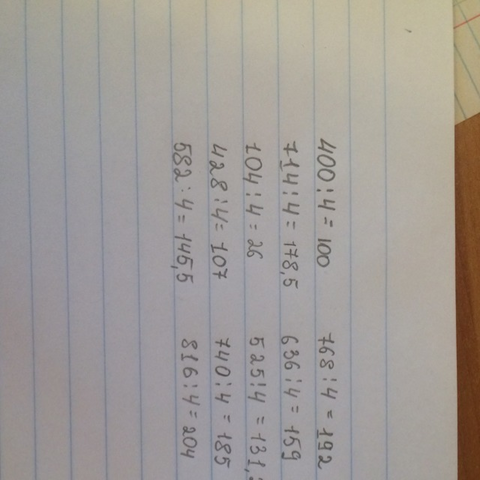 400:4=100 768:4=192
714:4=178,5 636:4=159
104:4=26 525:4=131,
428:4=107 740:4=185
582:4=145,5 816:4=204